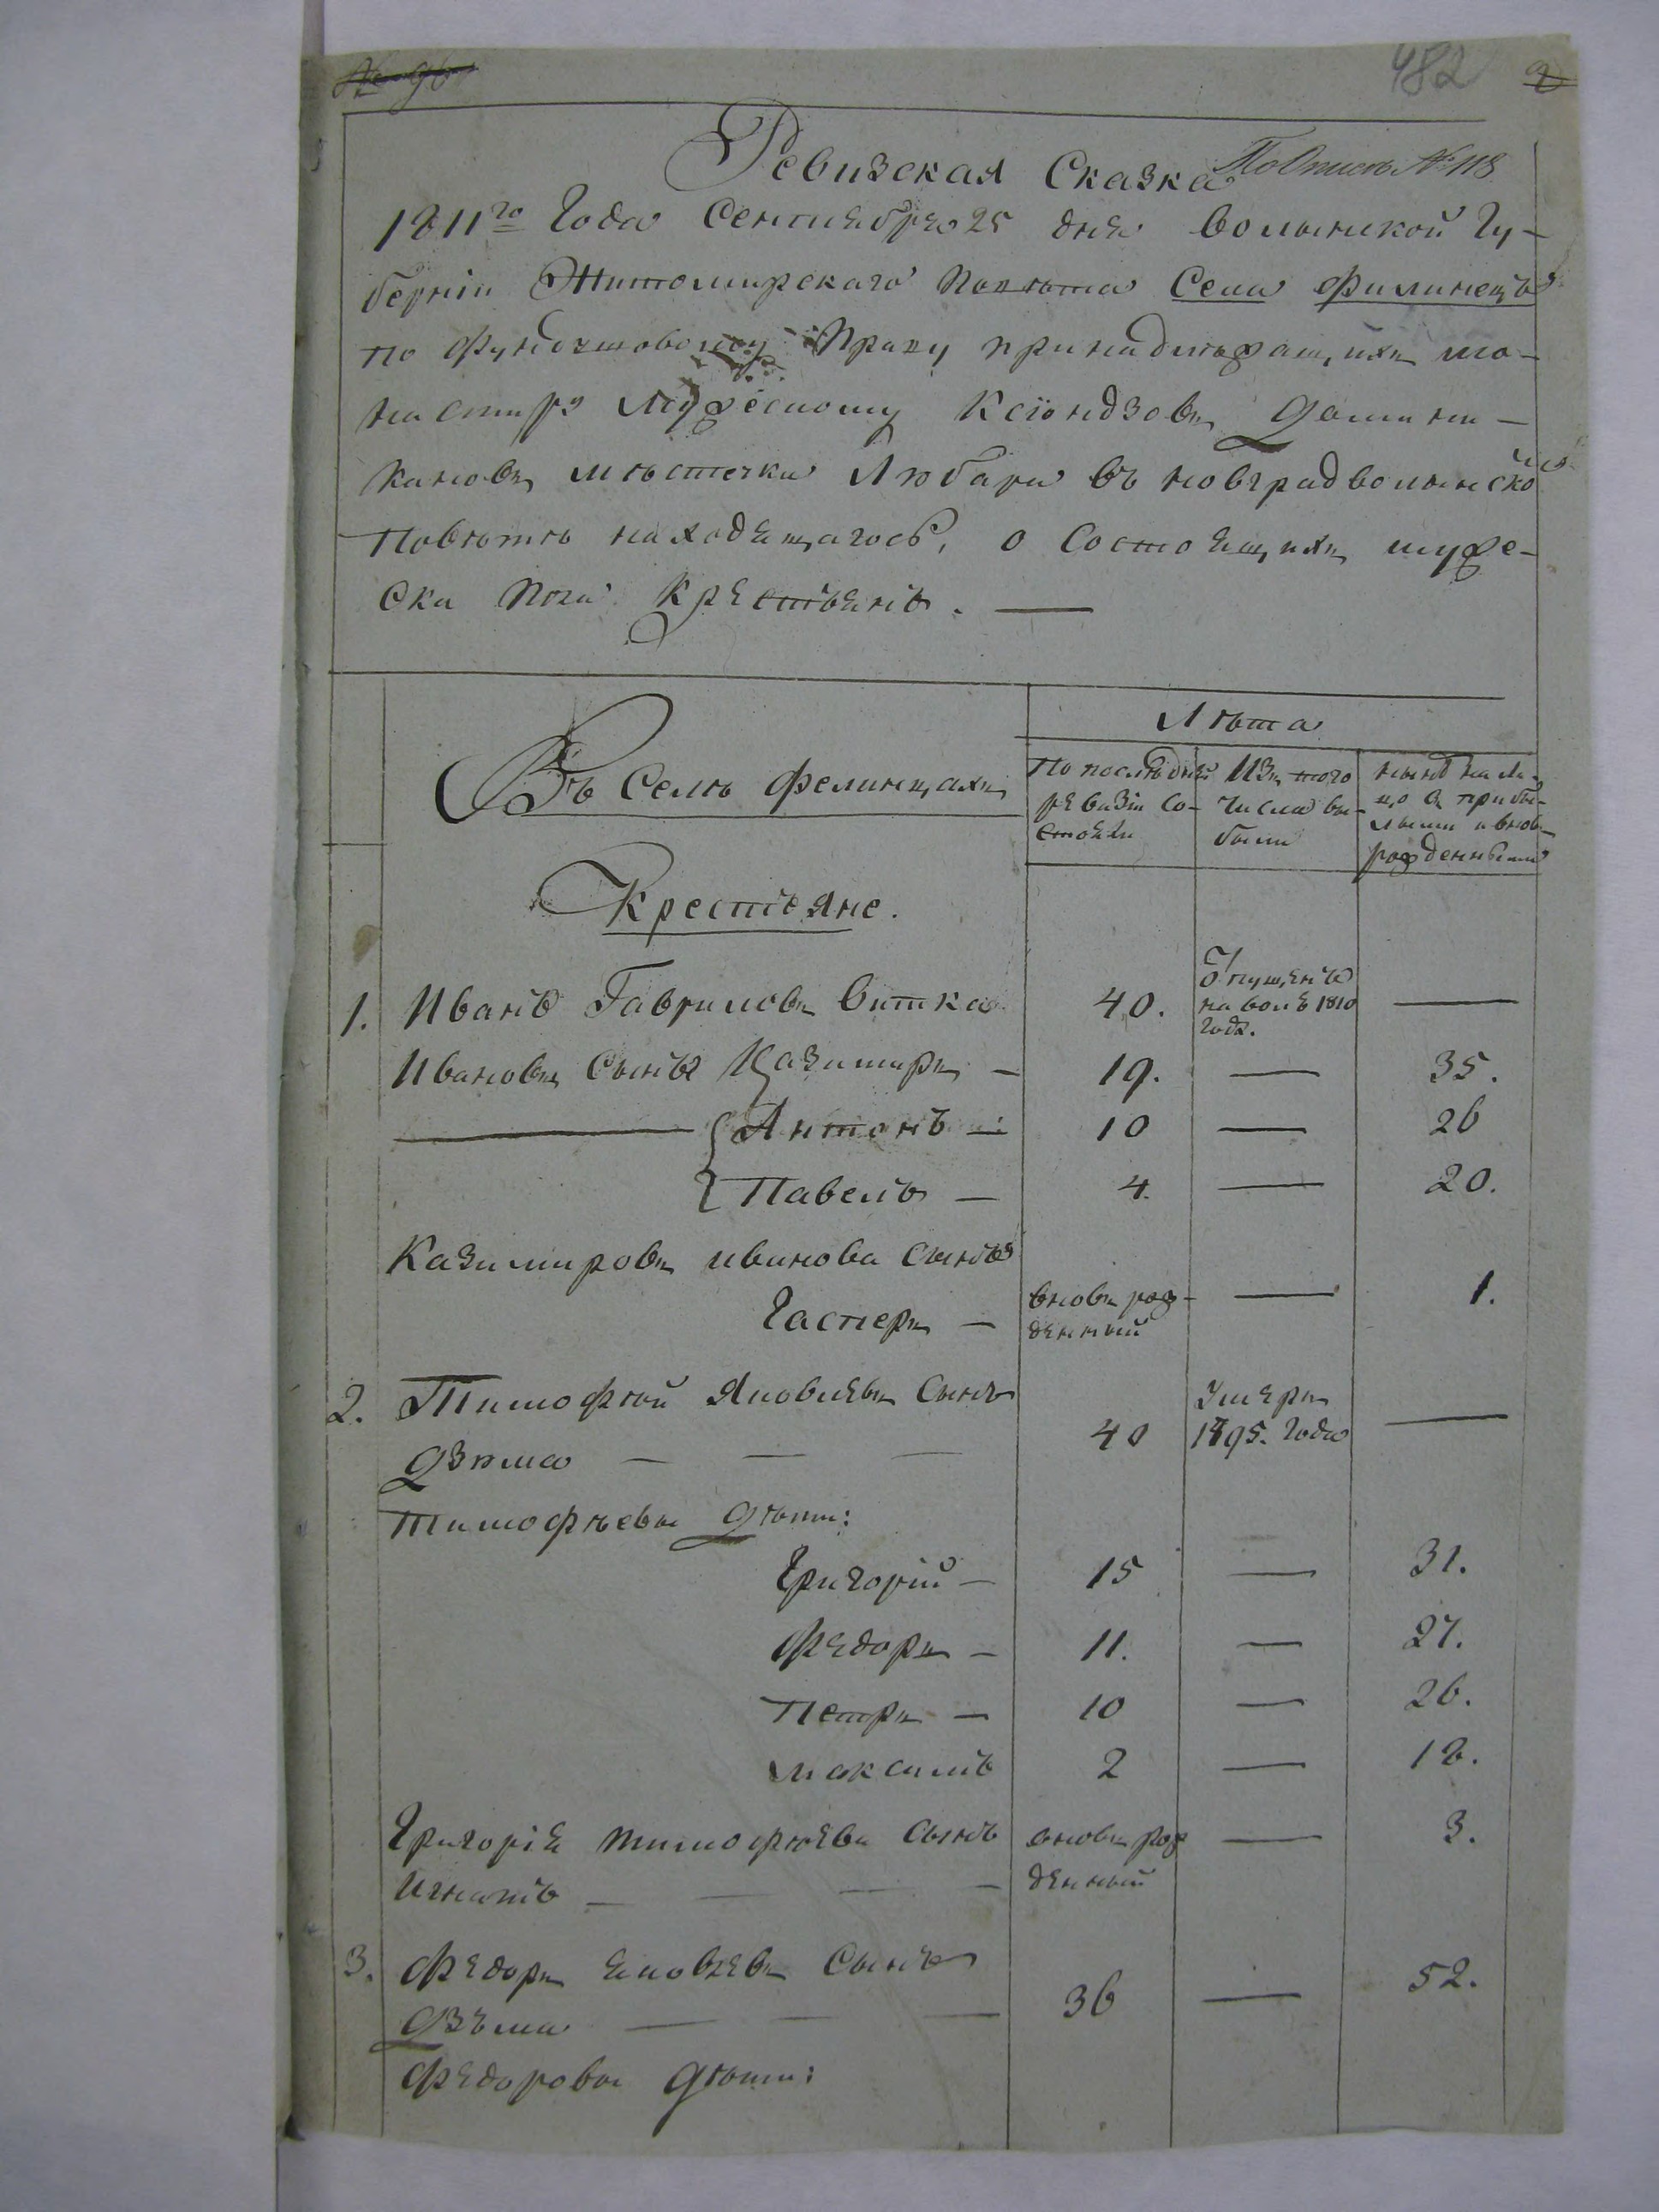 482
Ревизская Сказка По Описи № 118
1811го Года Сентября 25 дня Волынской Гу-
берніи Житомирскаго Повѣта Села Филинецъ
по Фундушовому Праву принадлежащихъ мо-
настырю Мужескому Ксіондзовъ Домини-
кановъ мѣстечка Любара въ новградволынско
Повѣтѣ находящагось, о Состоящихъ муже-
ска пола Крестьянъ. —
Лѣта
Въ Селѣ Фелинцахъ
По послѣдней ревизіи Со-стояли
Изъ того числа вы-были
нынѣ на ли-цо съ прибы-лыми и вновь рожденными
Крестьяне.
1. Иванъ Гавриловъ Витка 40. Отпущенъ на волю 1810 года. —
Ивановы Сынъя Казимиръ — 19. — 35.
— Антонъ — 10 — 26
Павелъ — 4. — 20.
Казимировъ иванова Сынъ
Гасперъ — вновь рож-денный — 1.
2. Тимофѣй Яковлевъ Сынъ
Дзюма — — — 40 Умеръ 1795. Года —
Тимофѣевы Дѣти:
Григорій — 15 — 31.
Федоръ — 11. — 27.
Петръ — 10 — 26.
Максимъ 2 — 18.
Григорія тимофѣева Сынъ вновь рож — 3.
Игнатъ — — — — денный
3. Федоръ Яковлевъ Сынъ
Дзюма — — — 36 — 52.
Федоровы Дѣти: